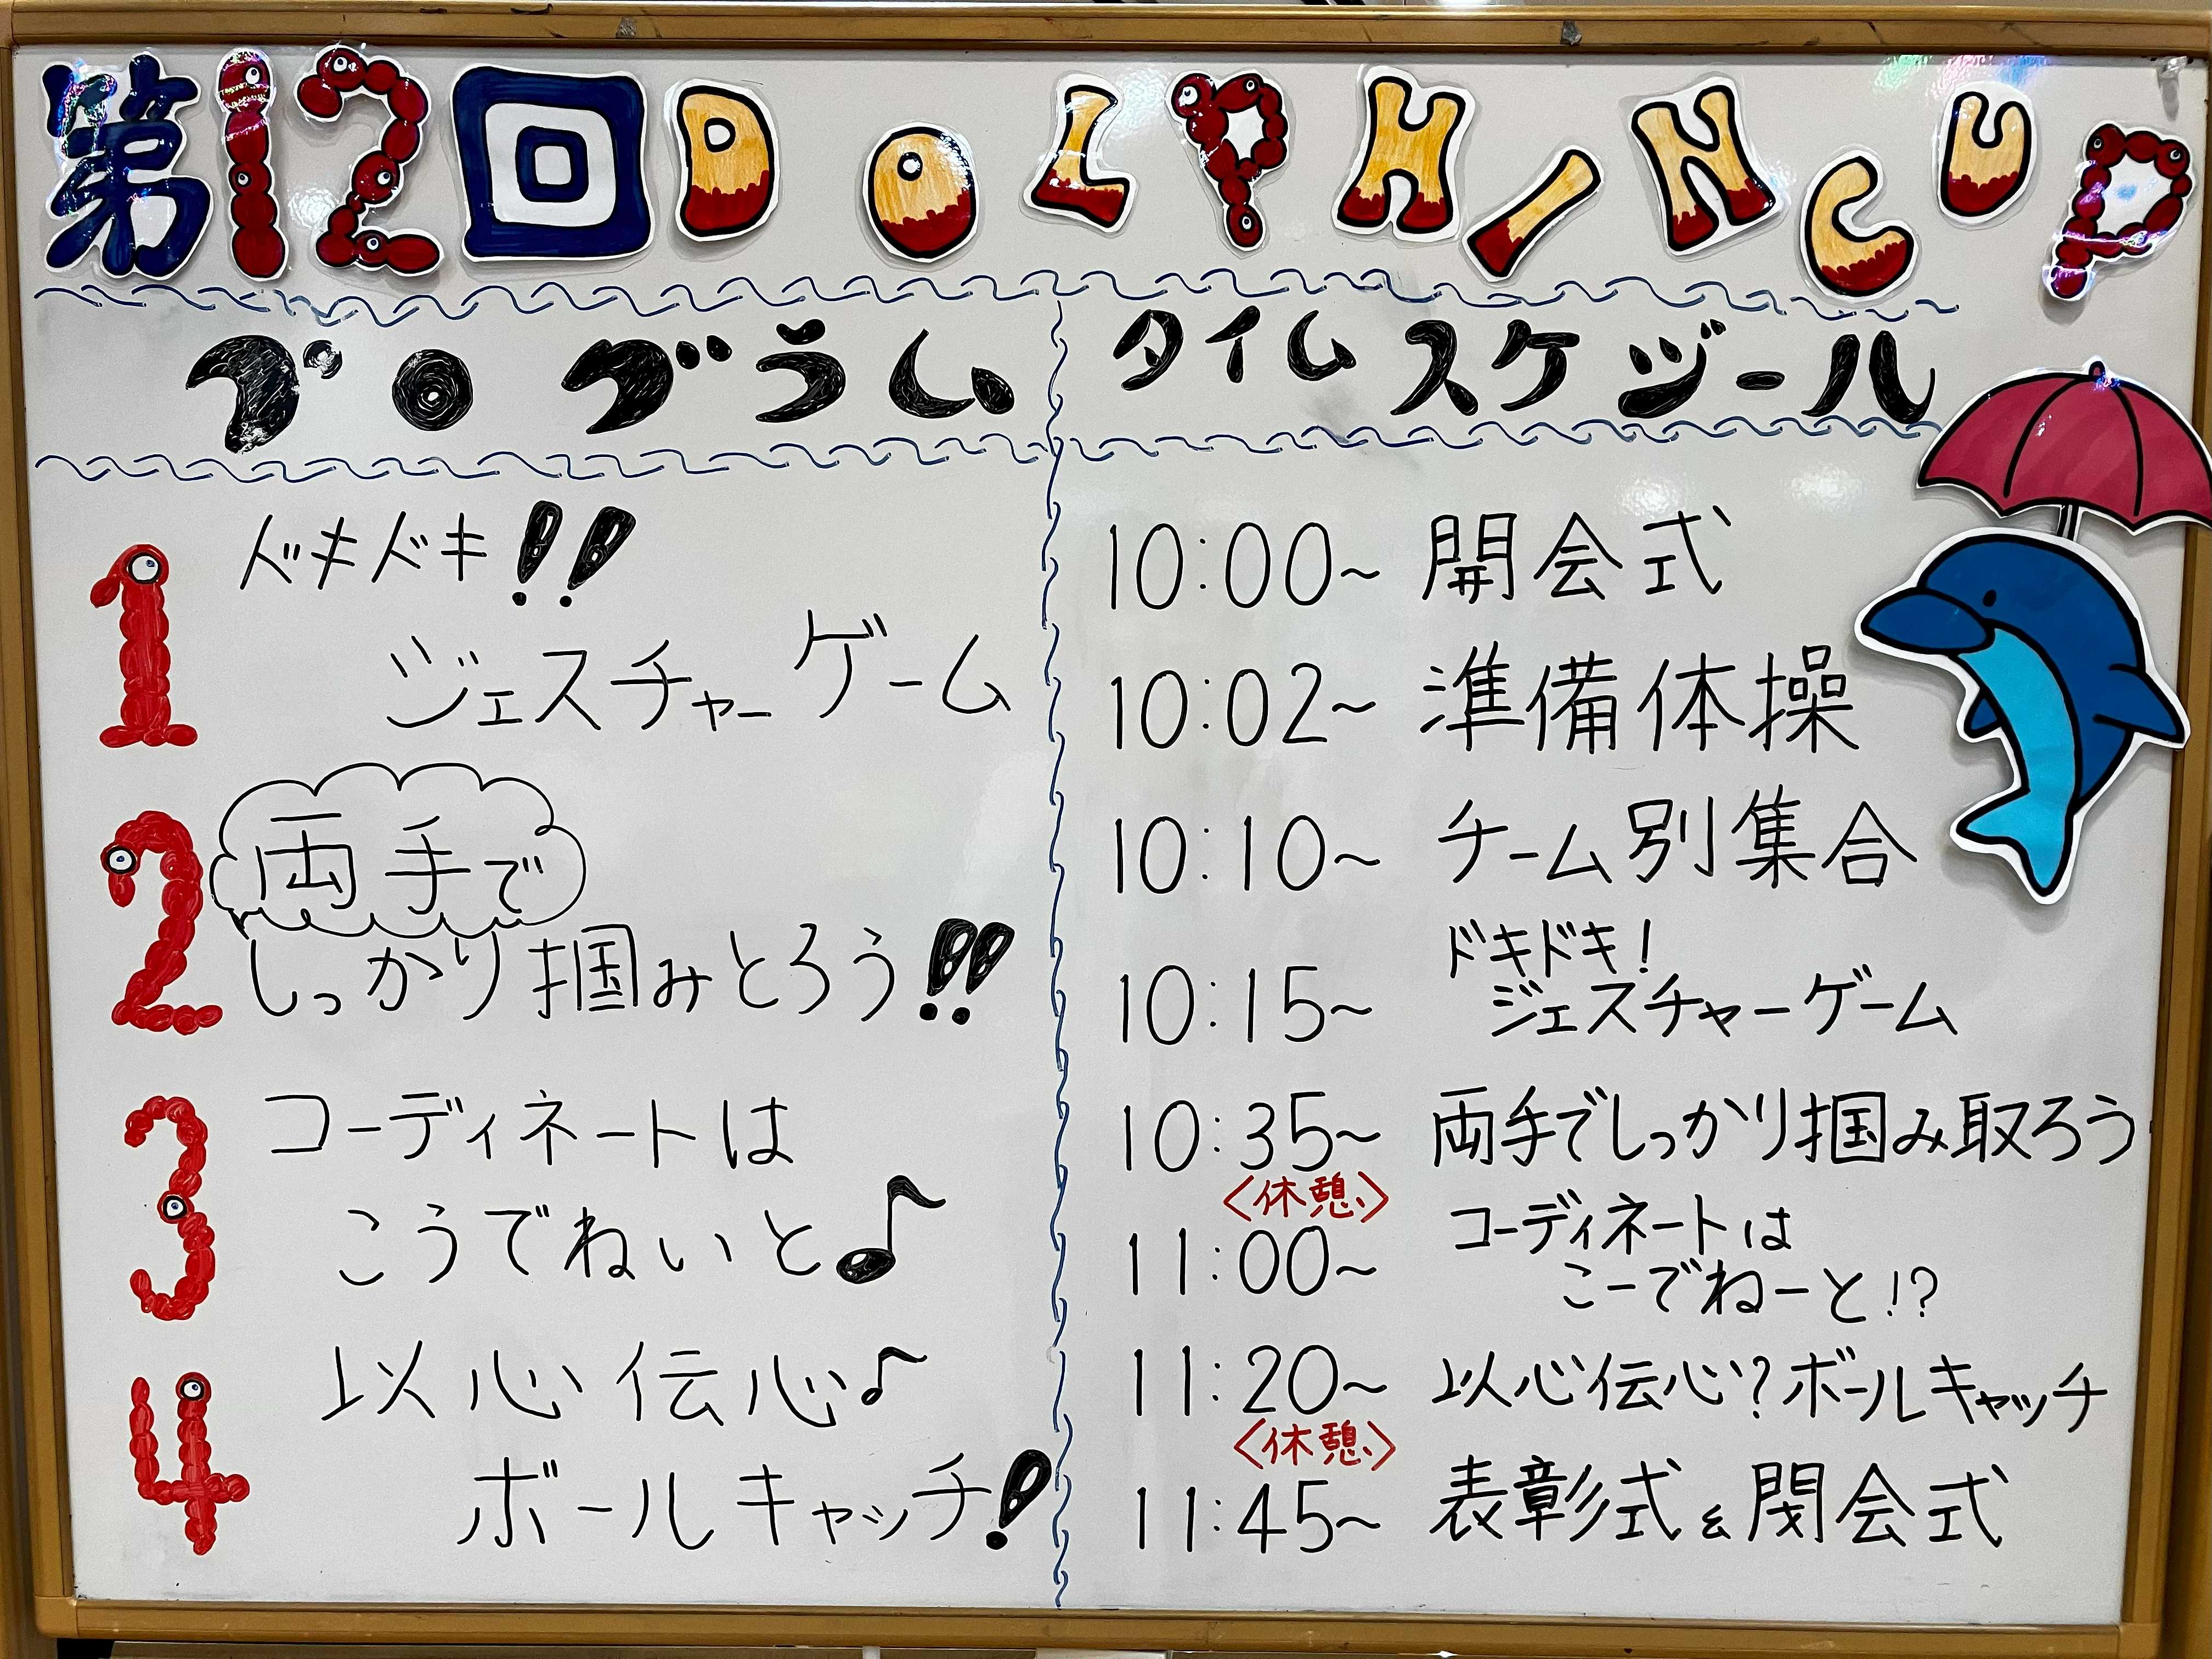 第12回 DOLPHIN CUP
プログラム
1 ドキドキ!!
ジェスチャーゲーム
2 両手で
しっかり掴みとろう!!
3 コーディネートは
こうでねいと♪
4 以心伝心♪
ボールキャッチ!
タイムスケジール
10:00~ 開会式
10:02~ 準備体操
10:10~ チーム別集合
10:15~ ドキドキ!
ジェスチャーゲーム
10:35~ 両手でしっかり掴み取ろう
<休憩>
11:00~ コーディネートは
こーでねーと!?
11:20~ 以心伝心?ボールキャッチ
<休憩>
11:45~ 表彰式&閉会式